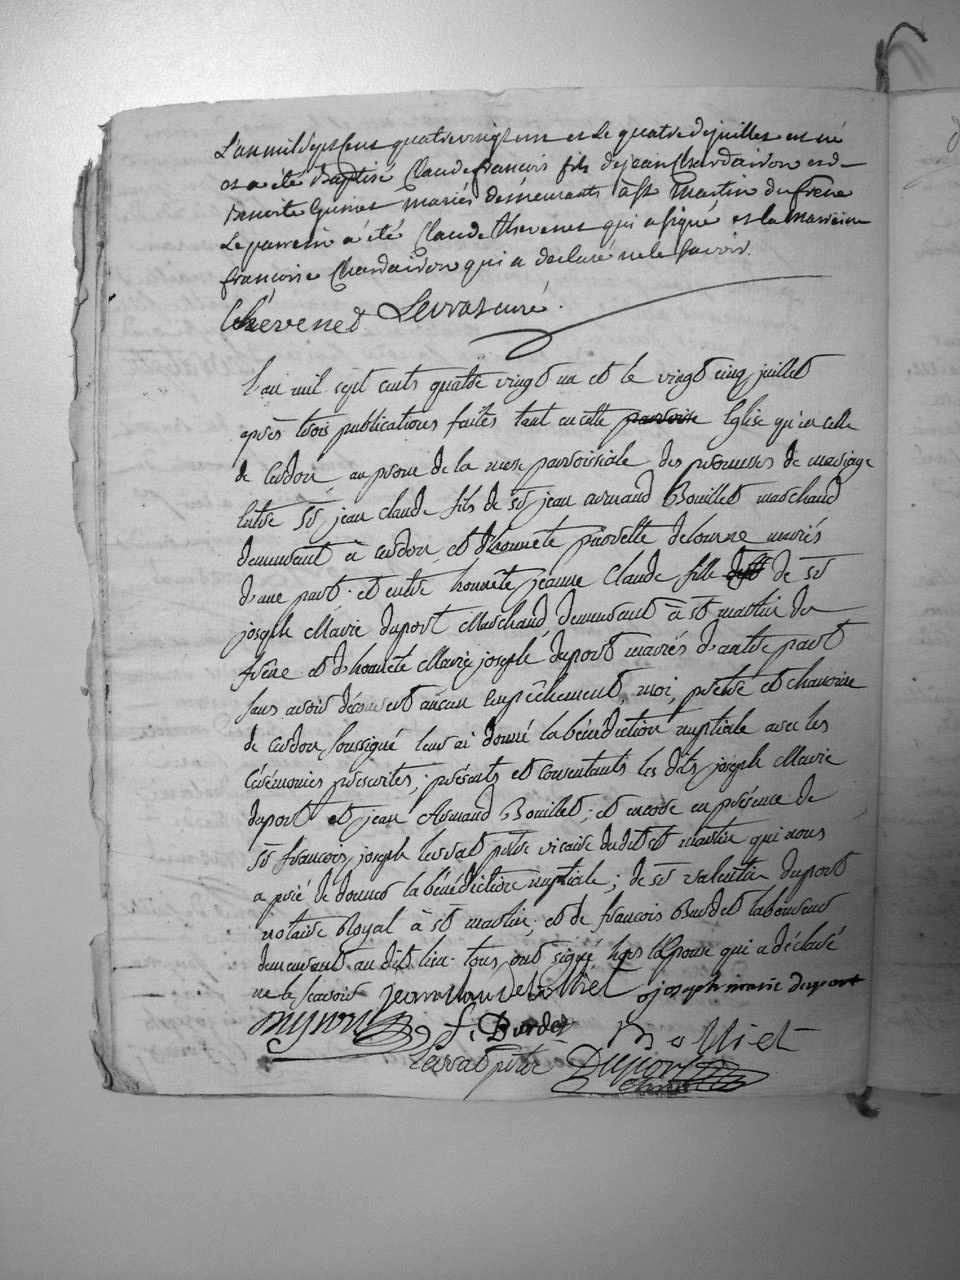 L'an mil sept cent quatre vingt un et le quatre de juillet est né
et a été Baptisé Claude françois fils de jean Chardaidon et de
Benoite Guinet mariés demeurants à st Martin du frene
Le parrein a été Claude Thevenet qui a signé et la marreine
françoise Chardaidon qui a declaré ne le sçavoir.
thévened Levrat curé.
L'an mil sept cents quatre vingt un et le vingt cinq juillet
après trois publications faites tant en cette paroisse Eglise qu'en celle
de Cerdon au prone de la messe paroissiale des promesses de mariage
Entre Sr jean claude fils de Sr jean armand Bouillet marchand
demeurant à cerdon et d'honnête pierrette delorme mariés
d'une part. et entre honnête jeanne Claude fille de Sr
joseph Marie duport Marchand demeurant à st martin du
frêne et d'honnête Marie joseph duport mariés d'autre part
sans avoir découvert aucun empêchement, moi, prêtre et chanoine
de cerdon soussigné leur ai donné la bénédiction nuptiale avec les
cérémonies prescrites; présents et consentants les dits joseph Marie
duport et jean Armand Bouillet; et encore en présence de
Sr françois joseph levrat prêtre vicaire dudit st martin qui nous
a prié de donner la bénédiction nuptiale; de Sr valentin duport
notaire Royal à st martin; et de françois Burdet laboureur
demeurant au dit lieu. tous ont signé hors l'Epouse qui a déclaré
ne le scavoir jean claude bolliet joseph marie duport
duport f. Burdet Bolliet
Levrat prtr Duport